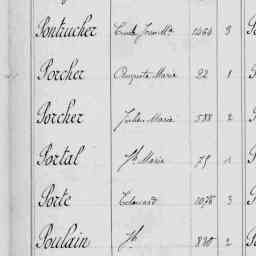 Pontrucher Emile Jean Mie 1464 3
Porcher Auguste Marie 22 1
Porcher Jules Marie 588 2
Portal Jh Marie 75 1
Porte Edouard 1078 3
Poulain Jh 880 2